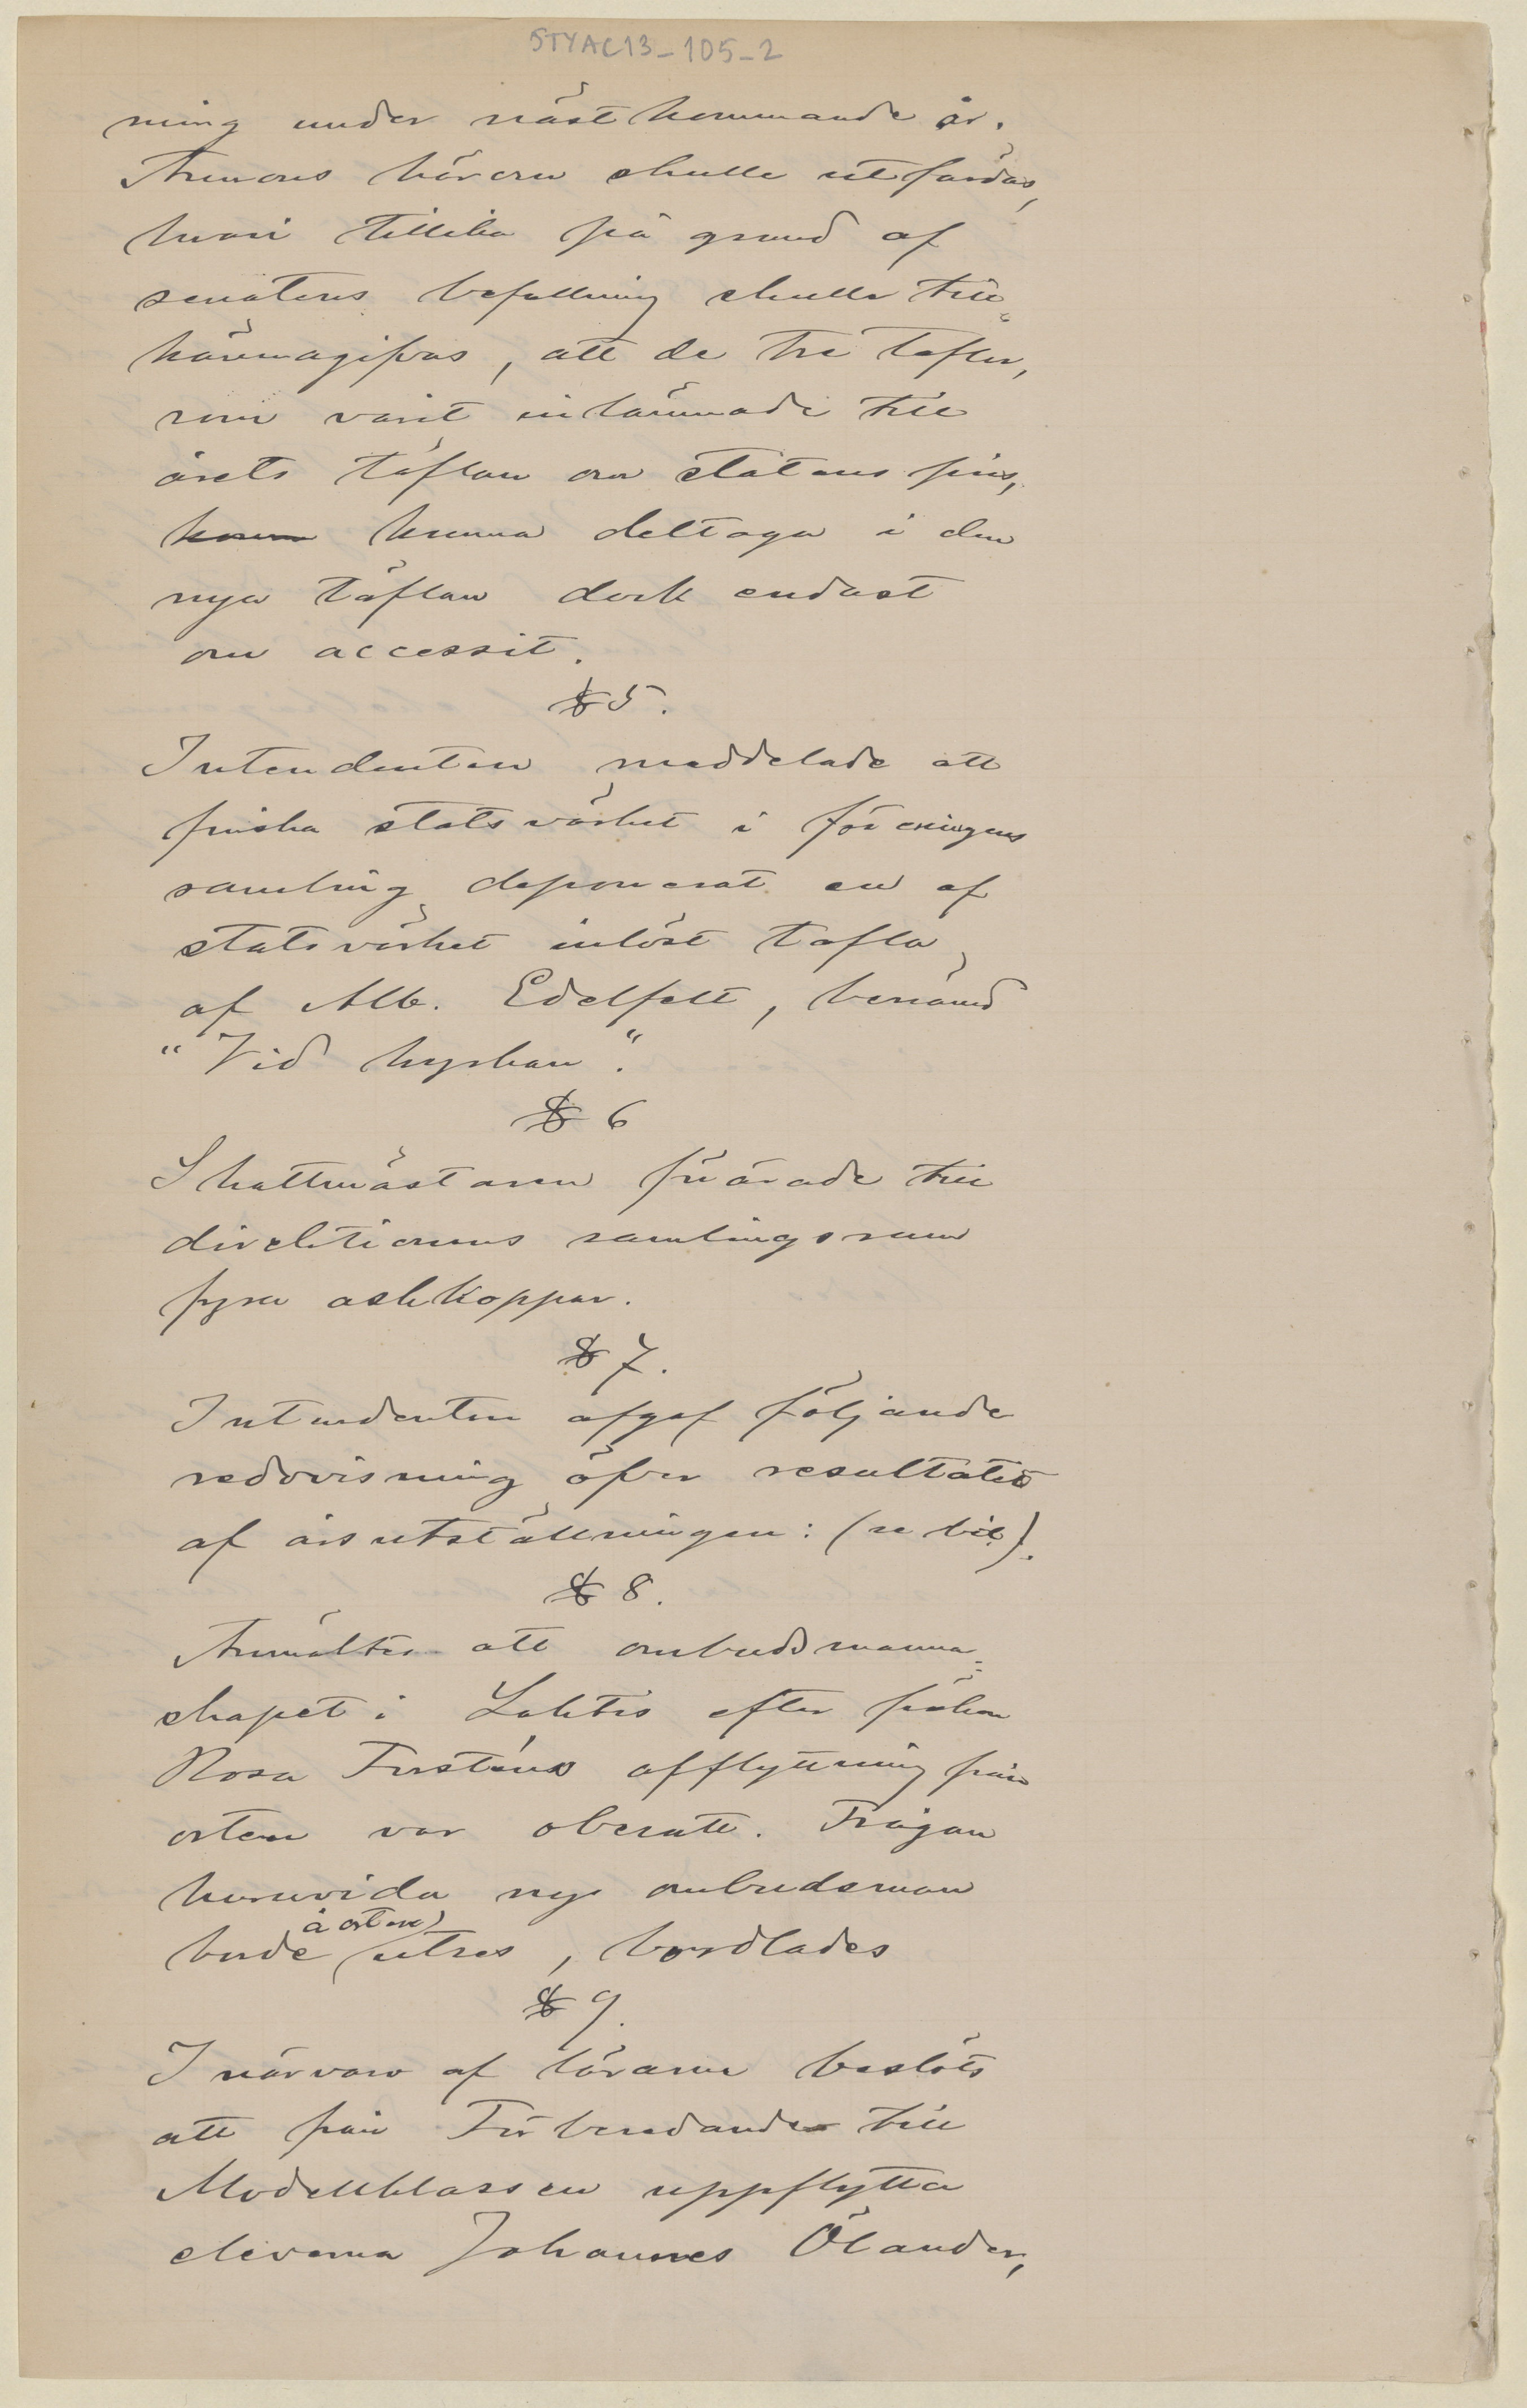 STYAC13-105-2
ning under nästkommande år.
Annons härom skulle utfärdas,
hvari tillika på grund af
senatens befallning skulle till-
kännagifvas, att de tre taflor,
som varit inlämnade till
årets täflan om statens pris,
kunna deltaga i den
nya täflan dock endast
om accessit.
§ 5.
Intendenten meddelade att
finska statsvärket i föreningens
samling deponerat en af
statsvärket inlöst tafla
af Alb. Edelfelt, benämd
"Vid kyrkan".
§ 6
Skattmästaren förärade till
direktionens samlingsrum
fyra askkoppar.
§ 7.
Intendenten afgaf följande
redovisning öfver resultatet
af årsutställningen: (se bil).
§ 8.
Anmältes att ombudsmanna-
skapet i Lahtis efter fröken
Rosa Forsténs afflyttning från
orten var obesatt. Frågan
huruvida ny ombudsman
å orten
borde utses, bordlades
§ 9.
I närvaro af lärarne beslöts
att från Förberedande till
Modellklassen uppflytta
eleverna Johannes Ölander,